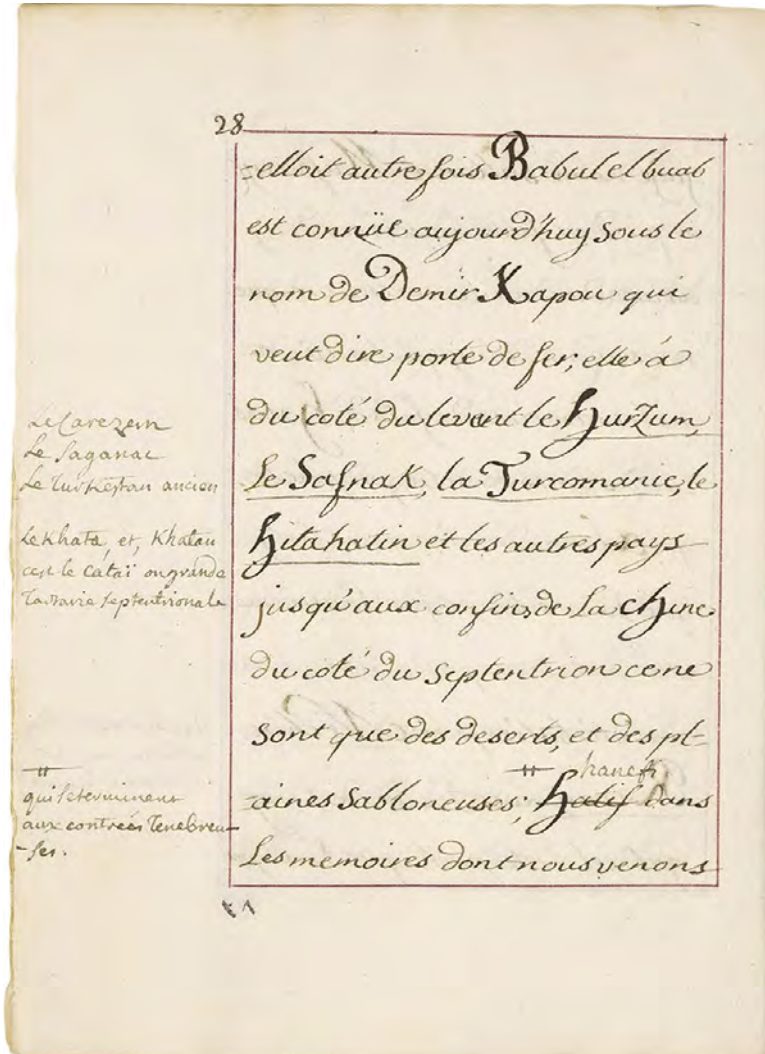 28
-elloit autre fois Babul el buab
est connüe aujourd'huy sous le
nom de Demir Kapou qui
veut dire porte de fer; elle á
du coté du levant le Hurzum,
Le Safnak, la Turcomanie, le
Hitahatin et les autres pays
jusqu'aux confins de La chine
du coté du Septentrion ce ne
sont que des deserts, et des pl-
hanefi
-aines Sabloneuses; Halif dans
Les memoires dont nous venons
Le Carezem
Le Saganac
Le Turkestan ancien
Le Khata, et, Khatau
c'est le Cataï ou grande
Tartarie septentrionale
qui se terminent
aux contrées Tenebreu-
-ses.
٢٨